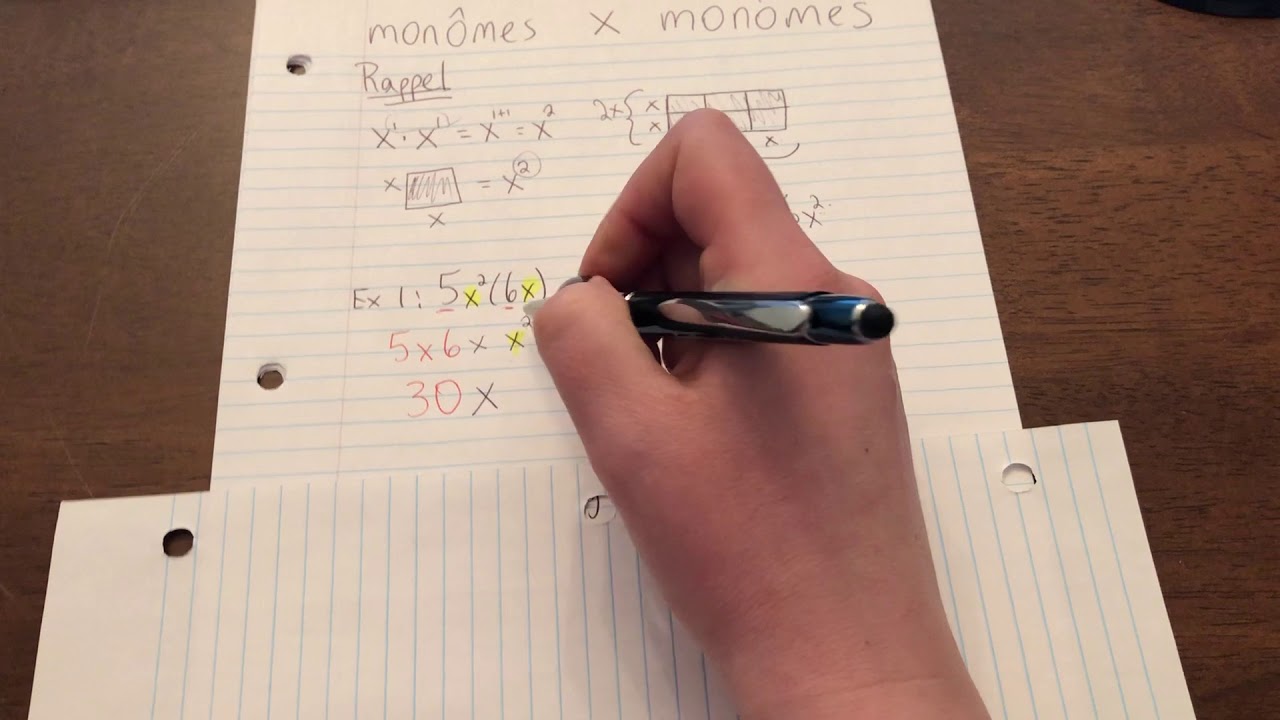 monômes x monômes
Rappel
x¹ · x¹ = x¹⁺¹ = x²
2x { x
x
x
x = x²
x
x²
Ex 1: 5x²(6x)
5 x 6 x x²
30 x